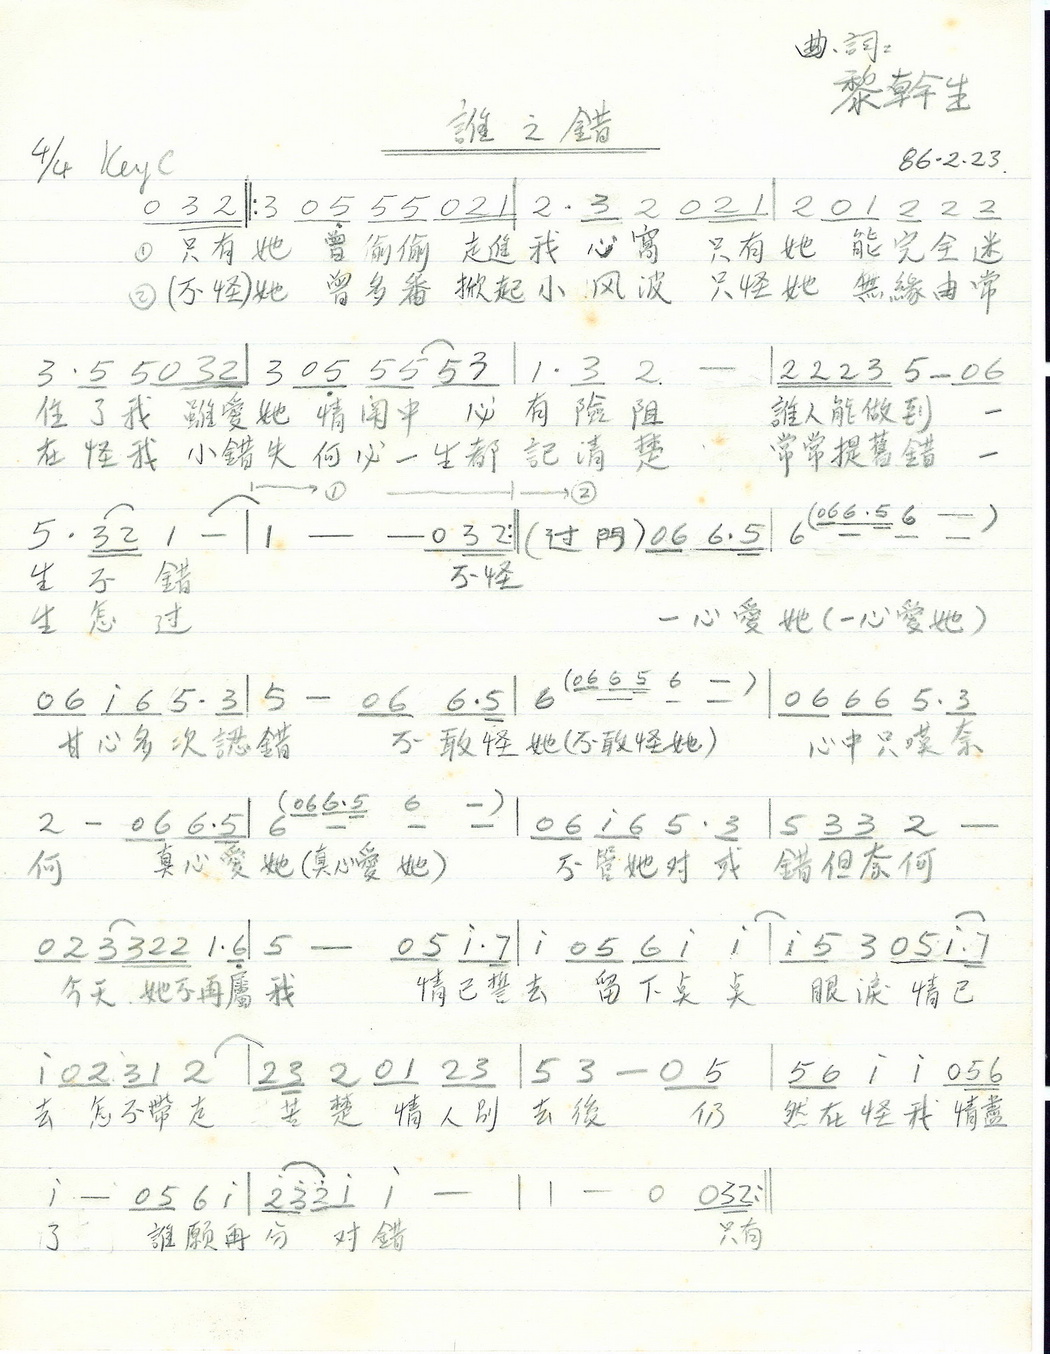 曲、詞：
黎幹生
誰之錯
4/4 Key C
86.2.23.
0 3 2 ‖: 3 0 5 5 5 0 2 1 | 2 · 3 2 0 2 1 | 2 0 1 2 2 2
① 只有她 曾偷偷 走進我心窩 只有她 能完全迷
② (不怪)她 曾多番 掀起小风波 只怪她 無緣由常
3 · 5 5 0 3 2 | 3 0 5 5 5 5 3 | 1 · 3 2 — | 2 2 2 3 5 — 0 6
住了我 雖愛她 情闱中 必有險阻 誰人能做到 一
在怪我 小錯失 何必一生都記清楚 常常提舊錯 一
① ②
5 · 3 2 1 — | 1 — — 0 3 2 :‖ (过門) 0 6 6 · 5 | 6 (0 6 6 · 5 6 —)
生不錯 不怪
生怎过 一心愛她(一心愛她)
0 6 i 6 5 · 3 | 5 — 0 6 6 · 5 | 6 (0 6 6 5 6 —) | 0 6 6 6 5 · 3
甘心多次認錯 不敢怪她(不敢怪她) 心中只嘆奈
2 — 0 6 6 · 5 | 6 (0 6 6 · 5 6 —) | 0 6 i 6 5 · 3 | 5 3 3 2 —
何 真心愛她(真心愛她) 不管她对或錯但奈何
0 2 3 3 2 2 1 · 6 | 5 — 0 5 i · 7 | i 0 5 6 i i | i 5 3 0 5 i · 7
今天她不再屬我 情已誓去 留下点点 眼淚 情已
i 0 2 3 1 2 | 2 3 2 0 1 2 3 | 5 3 — 0 5 | 5 6 i i 0 5 6
去 怎不帶走 苦楚 情人別去後 仍然在怪我 情盡
i — 0 5 6 i | 2 3 2 i i — | 1 — 0 0 3 2 :‖
了 誰願再分对錯 只有